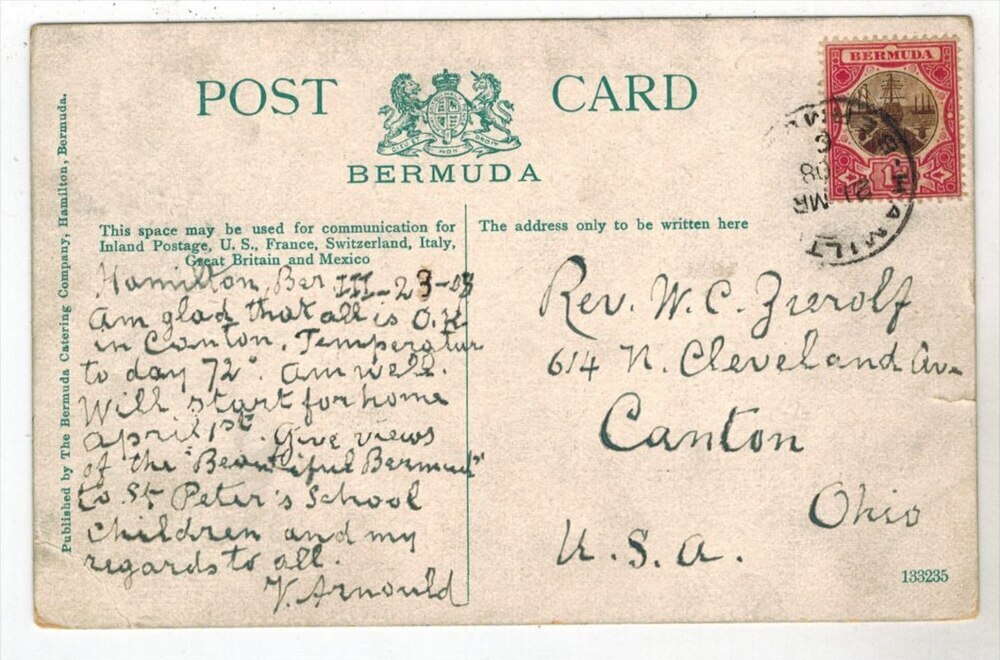 POST CARD
DIEU ET MON DROIT
BERMUDA
BERMUDA
1d
HAMILT
21 MR
08
Published by The Bermuda Catering Company, Hamilton, Bermuda.
This space may be used for communication for
Inland Postage, U. S., France, Switzerland, Italy,
Great Britain and Mexico
Hamilton, Ber III-23-08
Am glad that all is O.K
in Canton. Temperatur
to day 72°. Am well.
Will start for home
April 1st. Give views
of the "Beautiful Bermuda"
to St Peter's School
children and my
regards to all.
V. Arnould
The address only to be written here
Rev. W. C. Zierolf
614 N. Cleveland Av.
Canton
Ohio
U. S. A.
133235